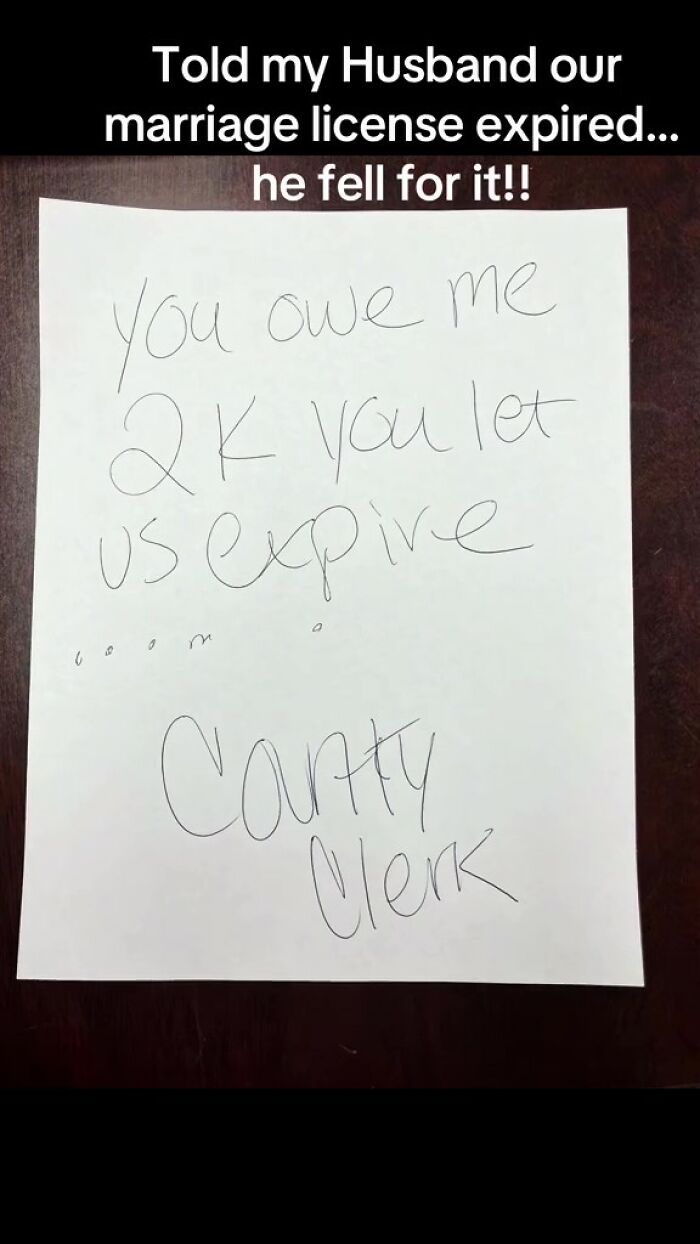 Told my Husband our
marriage license expired...
he fell for it!!
you owe me
2K you let
us expire
.....
County
Clerk